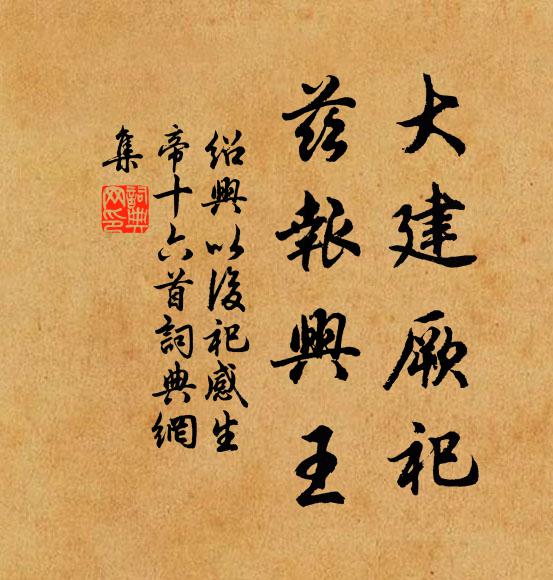 大建厥祀
茲報興王
紹興以後祀感生
帝十六首詞典網
集
詞典網印